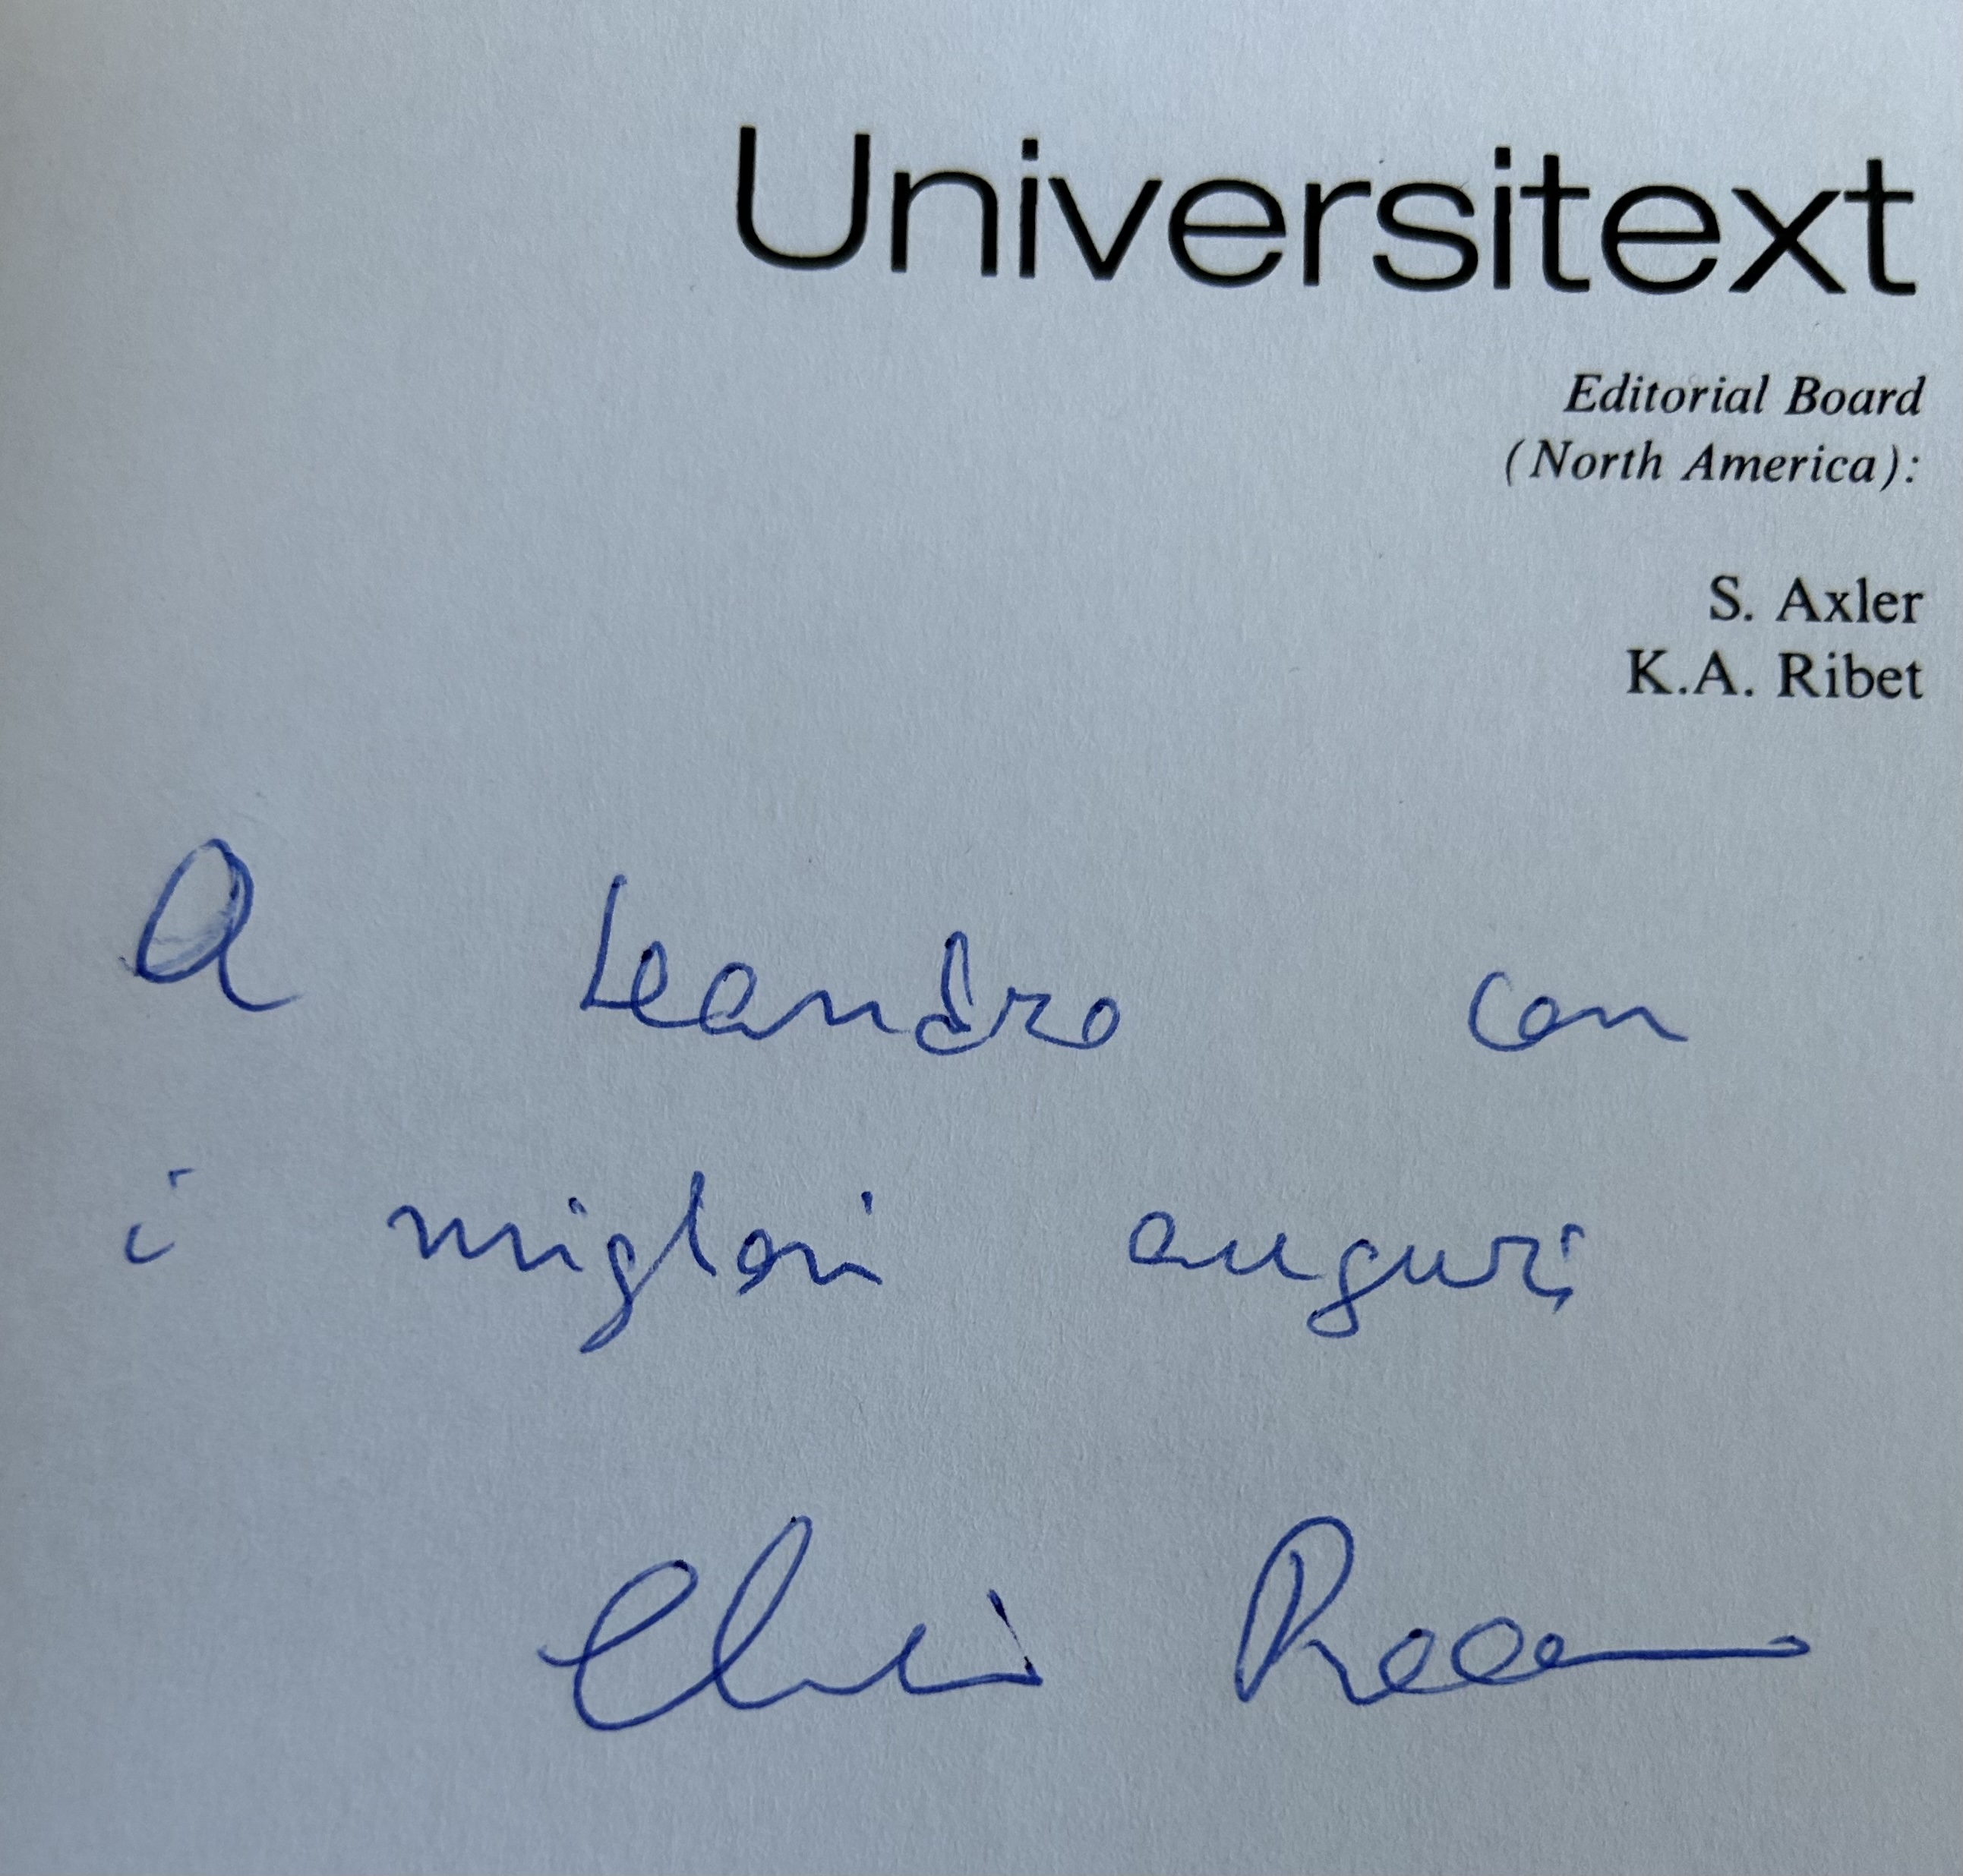 Universitext
Editorial Board
(North America):
S. Axler
K.A. Ribet
A Leandro con
i migliori auguri